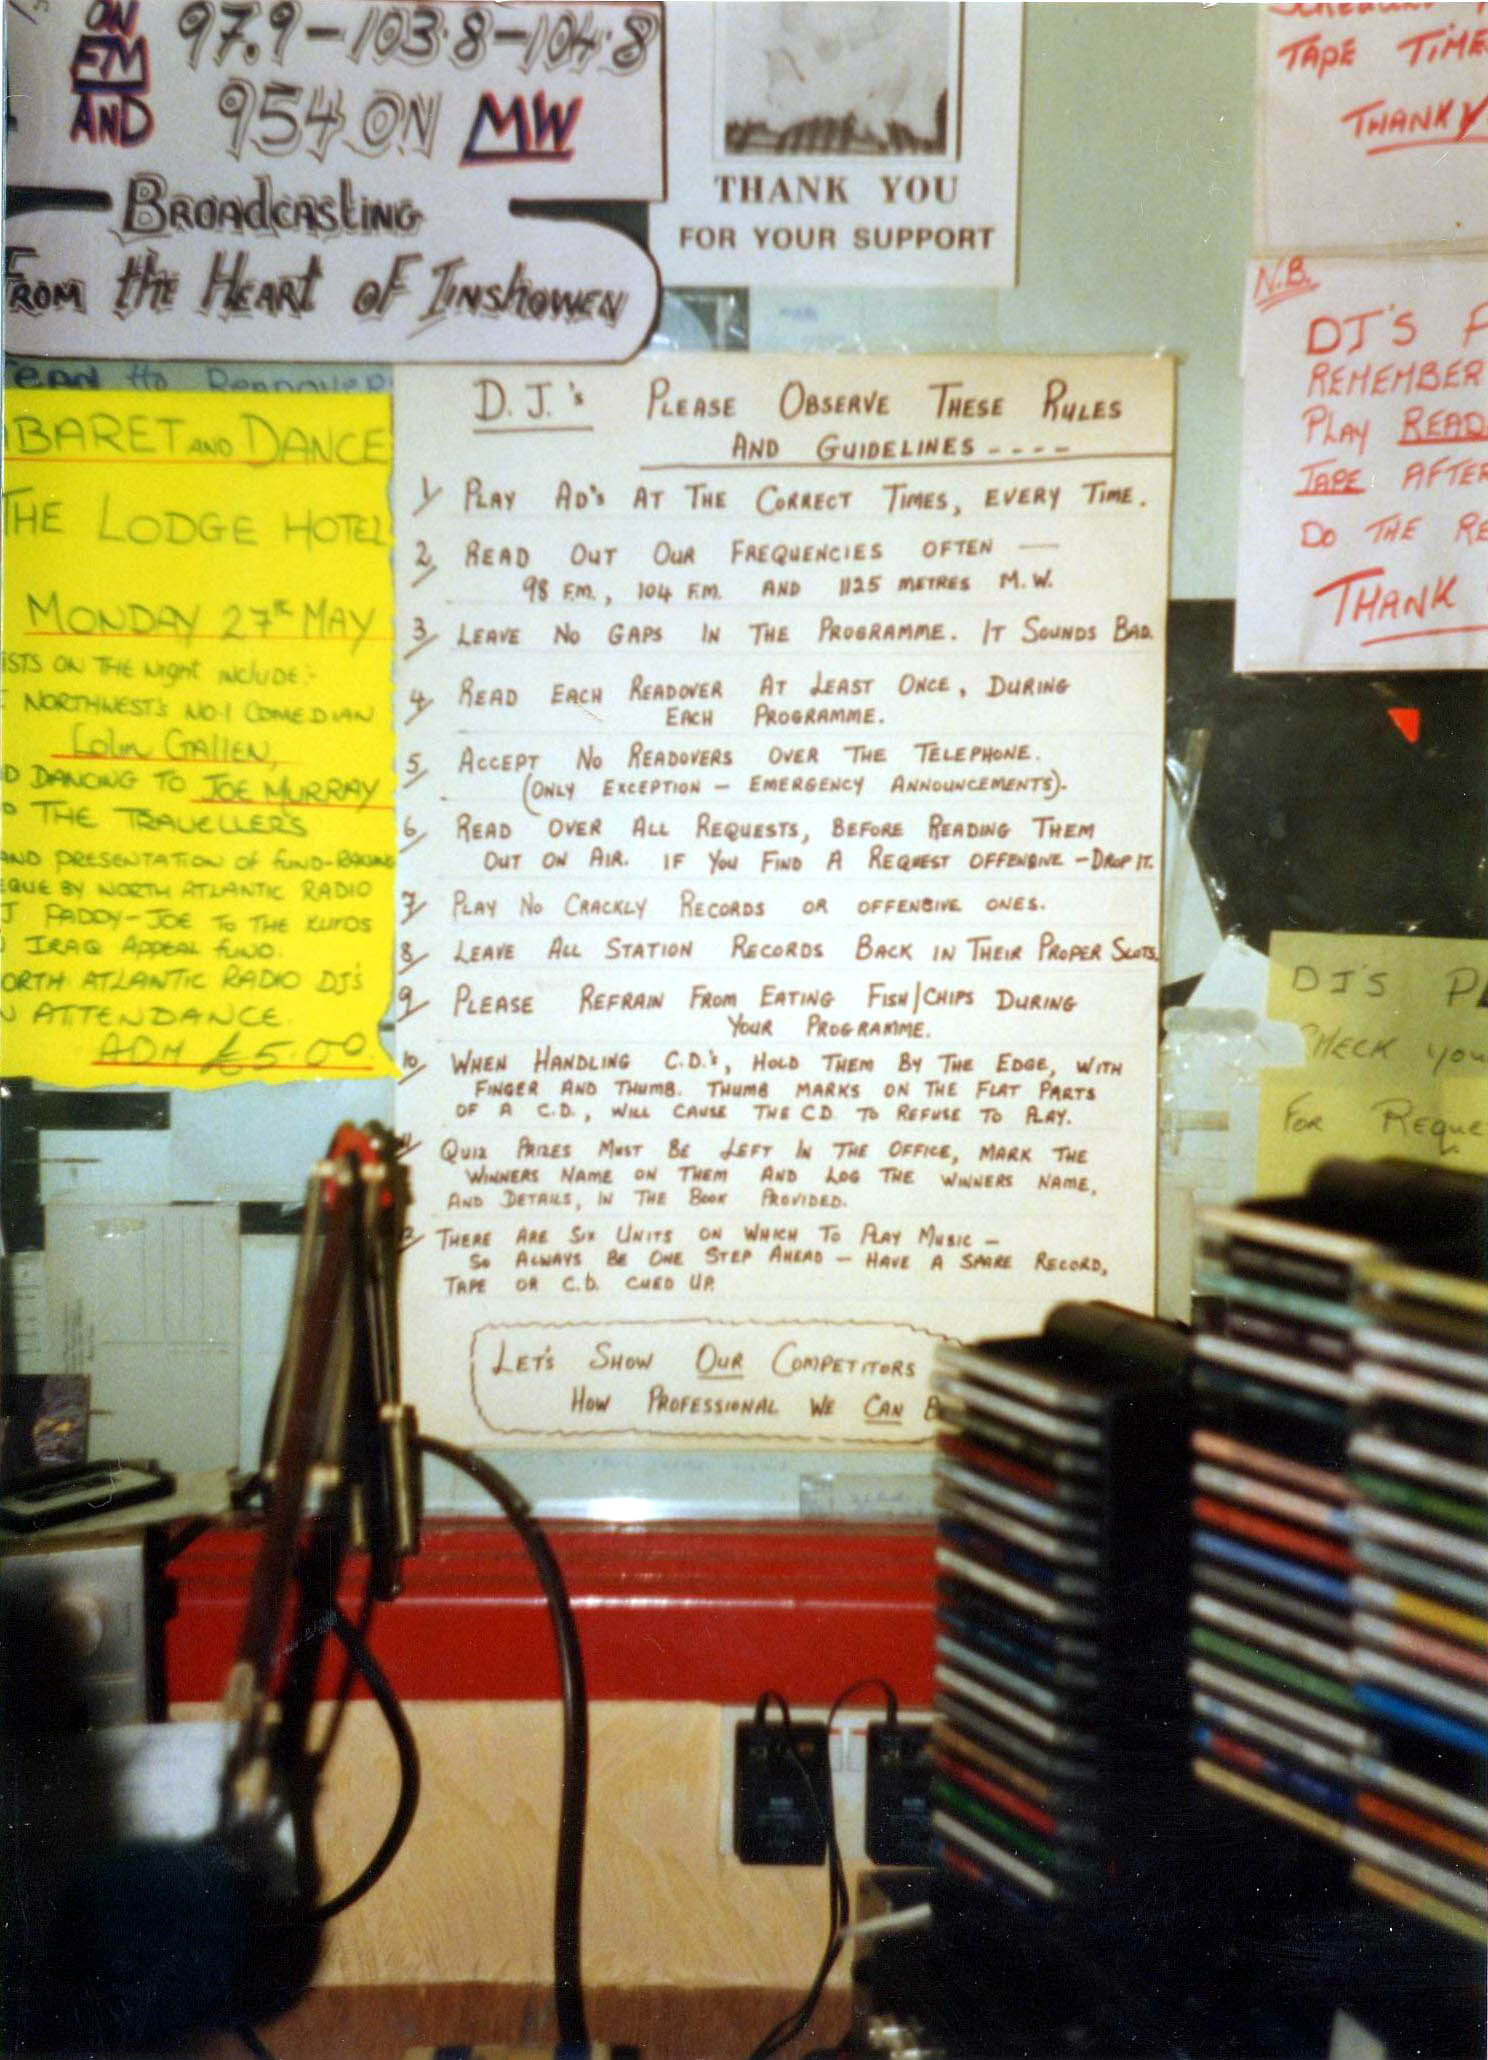 ON
FM
AND
97.9-103.8-104.8
954 ON MW
Broadcasting
From the Heart of Inishowen
THANK YOU
FOR YOUR SUPPORT
TAPE TIME
THANKY
N.B.
DJ'S P
REMEMBER
PLAY READ
TAPE AFTER
DO THE RE
THANK
BARET AND DANCE
THE LODGE HOTEL
MONDAY 27TH MAY
ISTS ON THE NIGHT INCLUDE:-
NORTHWEST'S NO.1 COMEDIAN
Colin GALLEN,
D DANCING TO JOE MURRAY
THE TRAVELLERS
AND PRESENTATION OF FUND-RAISING
EQUE BY NORTH ATLANTIC RADIO
J PADDY-JOE TO THE KURDS
IRAQ APPEAL FUND.
ORTH ATLANTIC RADIO DJ's
N ATTENDANCE.
ADM £5.00.
D.J.'s PLEASE OBSERVE THESE RULES
AND GUIDELINES ----
1/ PLAY AD's AT THE CORRECT TIMES, EVERY TIME.
2/ READ OUT OUR FREQUENCIES OFTEN —
98 F.M., 104 F.M. AND 1125 METRES M.W.
3/ LEAVE NO GAPS IN THE PROGRAMME. IT SOUNDS BAD.
4/ READ EACH READOVER AT LEAST ONCE, DURING
EACH PROGRAMME.
5/ ACCEPT NO READOVERS OVER THE TELEPHONE.
(ONLY EXCEPTION – EMERGENCY ANNOUNCEMENTS).
6/ READ OVER ALL REQUESTS, BEFORE READING THEM
OUT ON AIR. IF YOU FIND A REQUEST OFFENSIVE – DROP IT.
7/ PLAY NO CRACKLY RECORDS OR OFFENSIVE ONES.
8/ LEAVE ALL STATION RECORDS BACK IN THEIR PROPER SLOTS.
9/ PLEASE REFRAIN FROM EATING FISH/CHIPS DURING
YOUR PROGRAMME.
10/ WHEN HANDLING C.D.'s, HOLD THEM BY THE EDGE, WITH
FINGER AND THUMB. THUMB MARKS ON THE FLAT PARTS
OF A C.D., WILL CAUSE THE C.D. TO REFUSE TO PLAY.
11/ QUIZ PRIZES MUST BE LEFT IN THE OFFICE, MARK THE
WINNERS NAME ON THEM AND LOG THE WINNERS NAME,
AND DETAILS, IN THE BOOK PROVIDED.
2/ THERE ARE SIX UNITS ON WHICH TO PLAY MUSIC –
SO ALWAYS BE ONE STEP AHEAD – HAVE A SPARE RECORD,
TAPE OR C.D. CUED UP.
LET'S SHOW OUR COMPETITORS
HOW PROFESSIONAL WE CAN B
DJ'S PL
CHECK you
FOR Reque